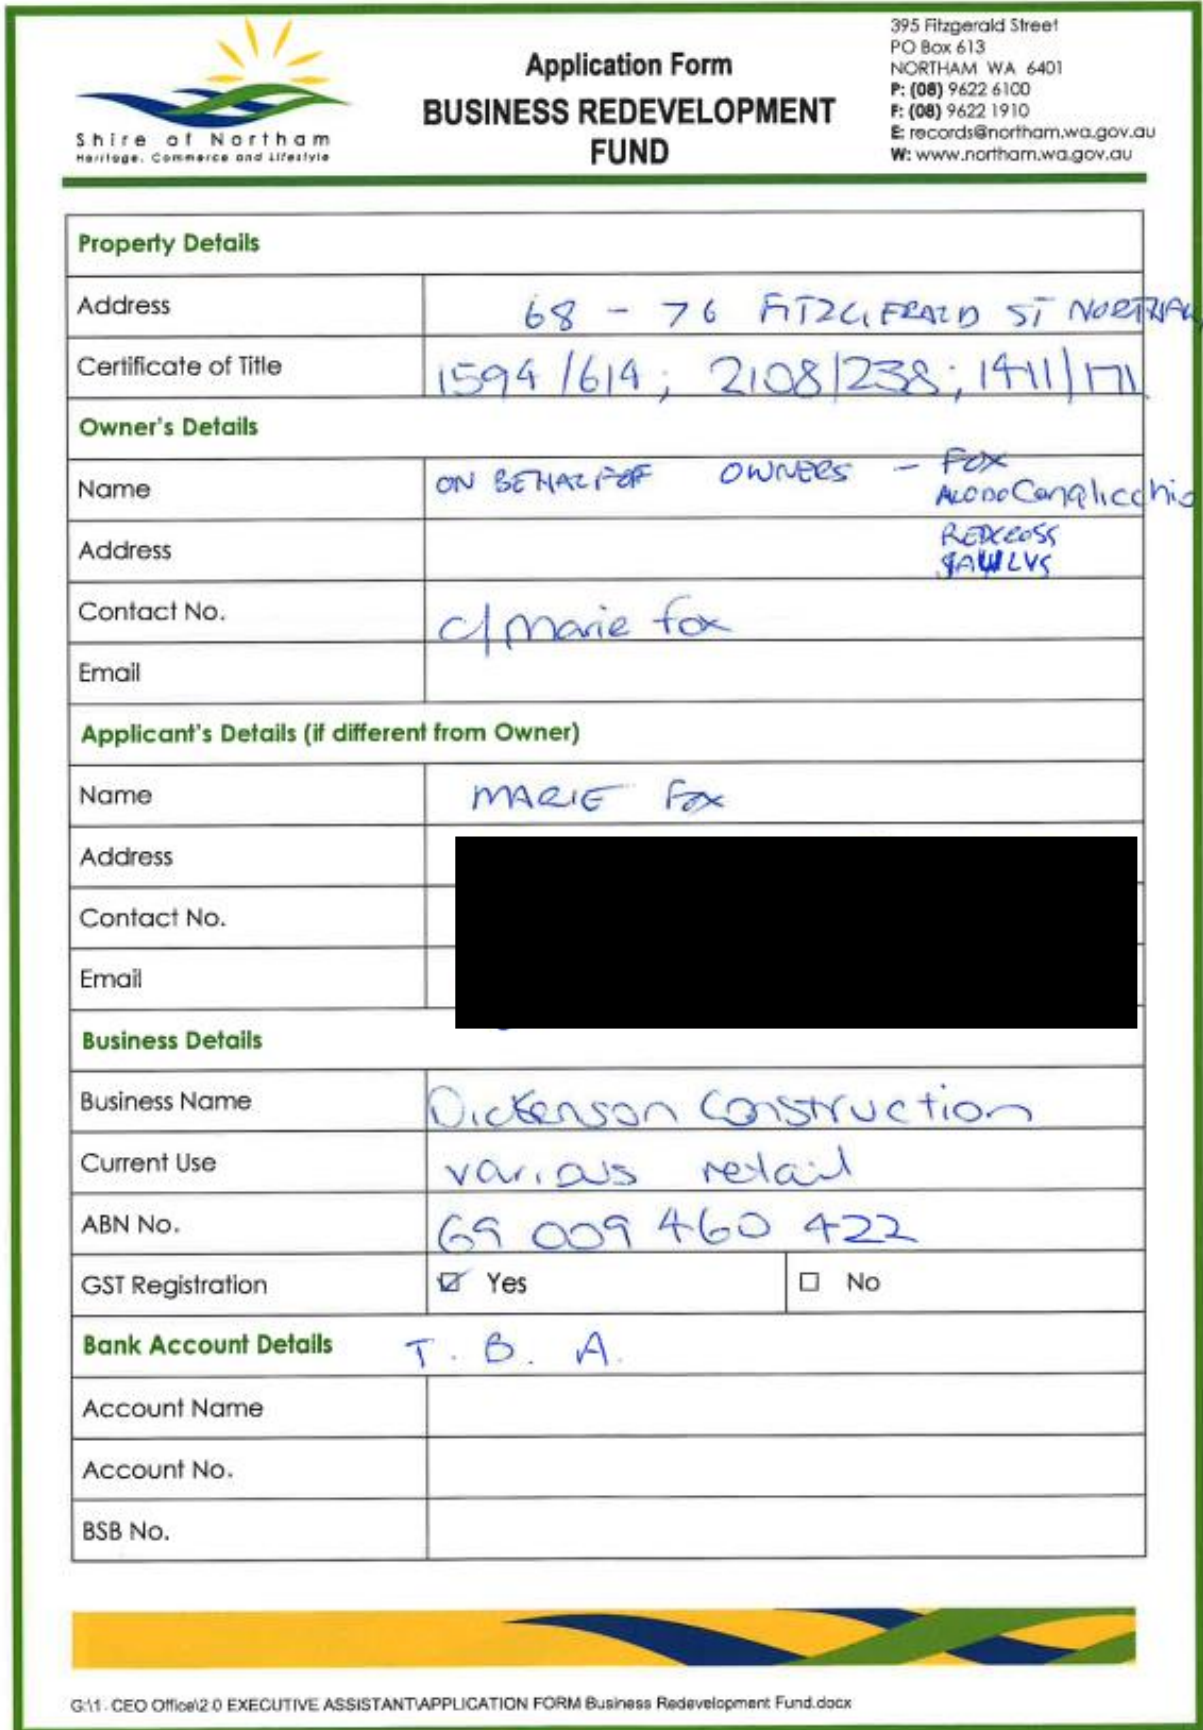 Shire of Northam
Heritage, Commerce and Lifestyle
Application Form
BUSINESS REDEVELOPMENT
FUND
395 Fitzgerald Street
PO Box 613
NORTHAM WA 6401
P: (08) 9622 6100
F: (08) 9622 1910
E: records@northam.wa.gov.au
W: www.northam.wa.gov.au
Property Details
Address 68 - 76 FITZGERALD ST NORTHAM
Certificate of Title 1594/614; 2108/238; 1411/171
Owner's Details
Name ON BEHALF OF OWNERS - FOX
REDCROSS
Address
Contact No. c/ Marie Fox
Email
Applicant's Details (if different from Owner)
Name MARIE FOX
Address
Contact No.
Email
Business Details
Business Name Dickenson Construction
Current Use various retail
ABN No. 69 009 460 422
GST Registration ☑ Yes ☐ No
Bank Account Details T. B. A.
Account Name
Account No.
BSB No.
G:\1. CEO Office\2.0 EXECUTIVE ASSISTANT\APPLICATION FORM Business Redevelopment Fund.docx